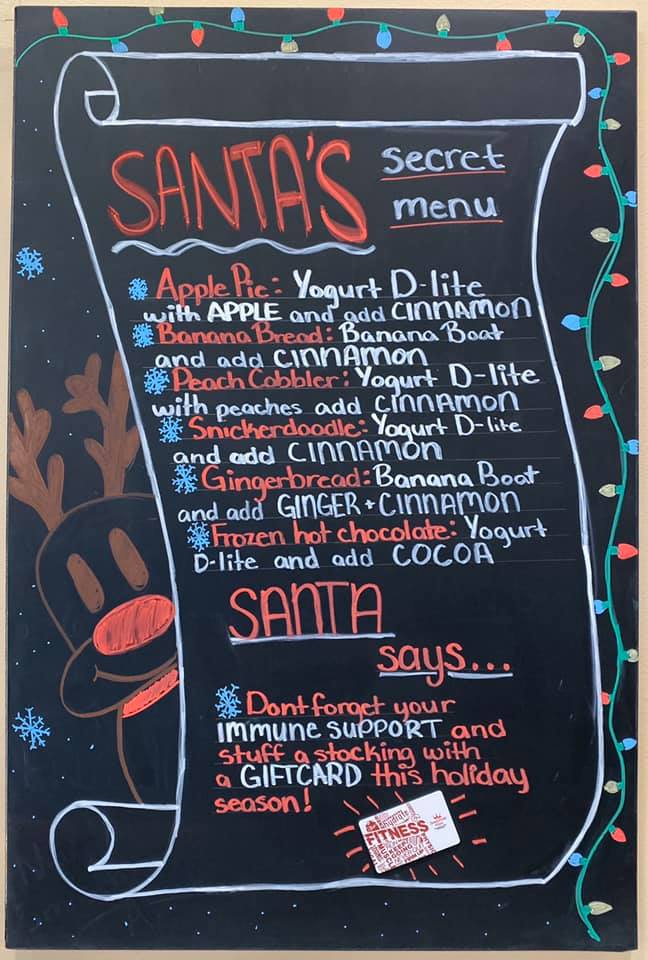 SANTA'S secret
menu
Apple Pie: Yogurt D-lite
with APPLE and add CINNAMON
Banana Bread: Banana Boat
and add CINNAMON
Peach Cobbler: Yogurt D-lite
with peaches add CINNAMON
Snickerdoodle: Yogurt D-lite
and add CINNAMON
Gingerbread: Banana Boat
and add GINGER + CINNAMON
Frozen hot chocolate: Yogurt
D-lite and add COCOA
SANTA
says...
Dont forget your
Immune SUPPORT and
stuff a stocking with
a GIFTCARD this holiday
season!
FITNESS